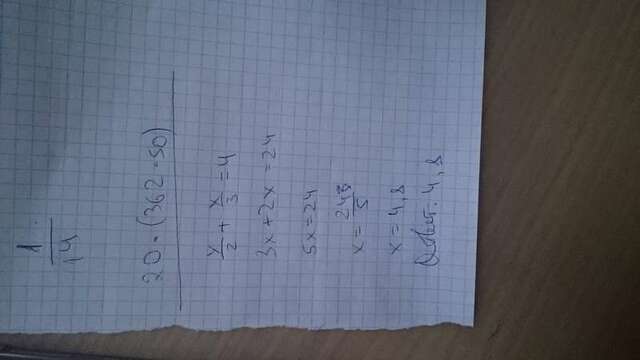 1
14
20 · (362 - 50)
y/2 + x/3 = 4
3x + 2x = 24
5x = 24
x = 24/5
x = 4,8
Ответ: 4,8